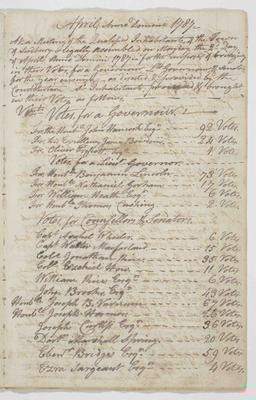 April, Anno Domini 1787
At a Meeting of the Qualified Inhabitants of the Town
of Sudbury legally Assembled on Monday the 2d Day
of April Anno Domini 1787 for the purpose of bringing
in their Votes for a Governour, Lieut Governour & Senators
for the year ensuing as directed & provided by the
Constitution. The Inhabitants proceeded & brought
in their Votes as follows,
Votes for a Governour
For the Honble John Hancock Esqr 92 Votes
For his Excellency James Bowdoin 24 Votes
For Oliver 1 Vote
Votes for a Lieut. Governor
For Honble Benjamin Lincoln 75 Votes
For Honble Nathaniel Gorham 17 Votes
For William Heath Votes
For Honble Thomas Cushing 2 Votes
Votes for Counsellors & Senators
Capt Asahel Wheeler 6 Votes
Capt 15 Votes
Colo Jonathan 35 Votes
Colo Ezekiel How 11 Votes
William Esqr 6 Votes
John Brooks Esqr 43 Votes
Honble Joseph B. Varnum 67 Votes
Honble Joseph Hosmer Votes
Joseph Esqr 36 Votes
Doctr Marshall Spring 20 Votes
Ebenr Bridge Esqr 59 Votes
Ezra Sargeant Esqr 4 Votes